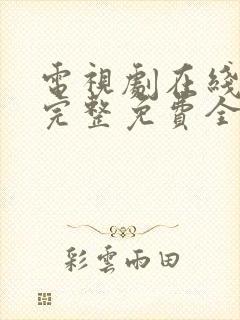 電視劇在綫
完整免費全
彩雲雨田